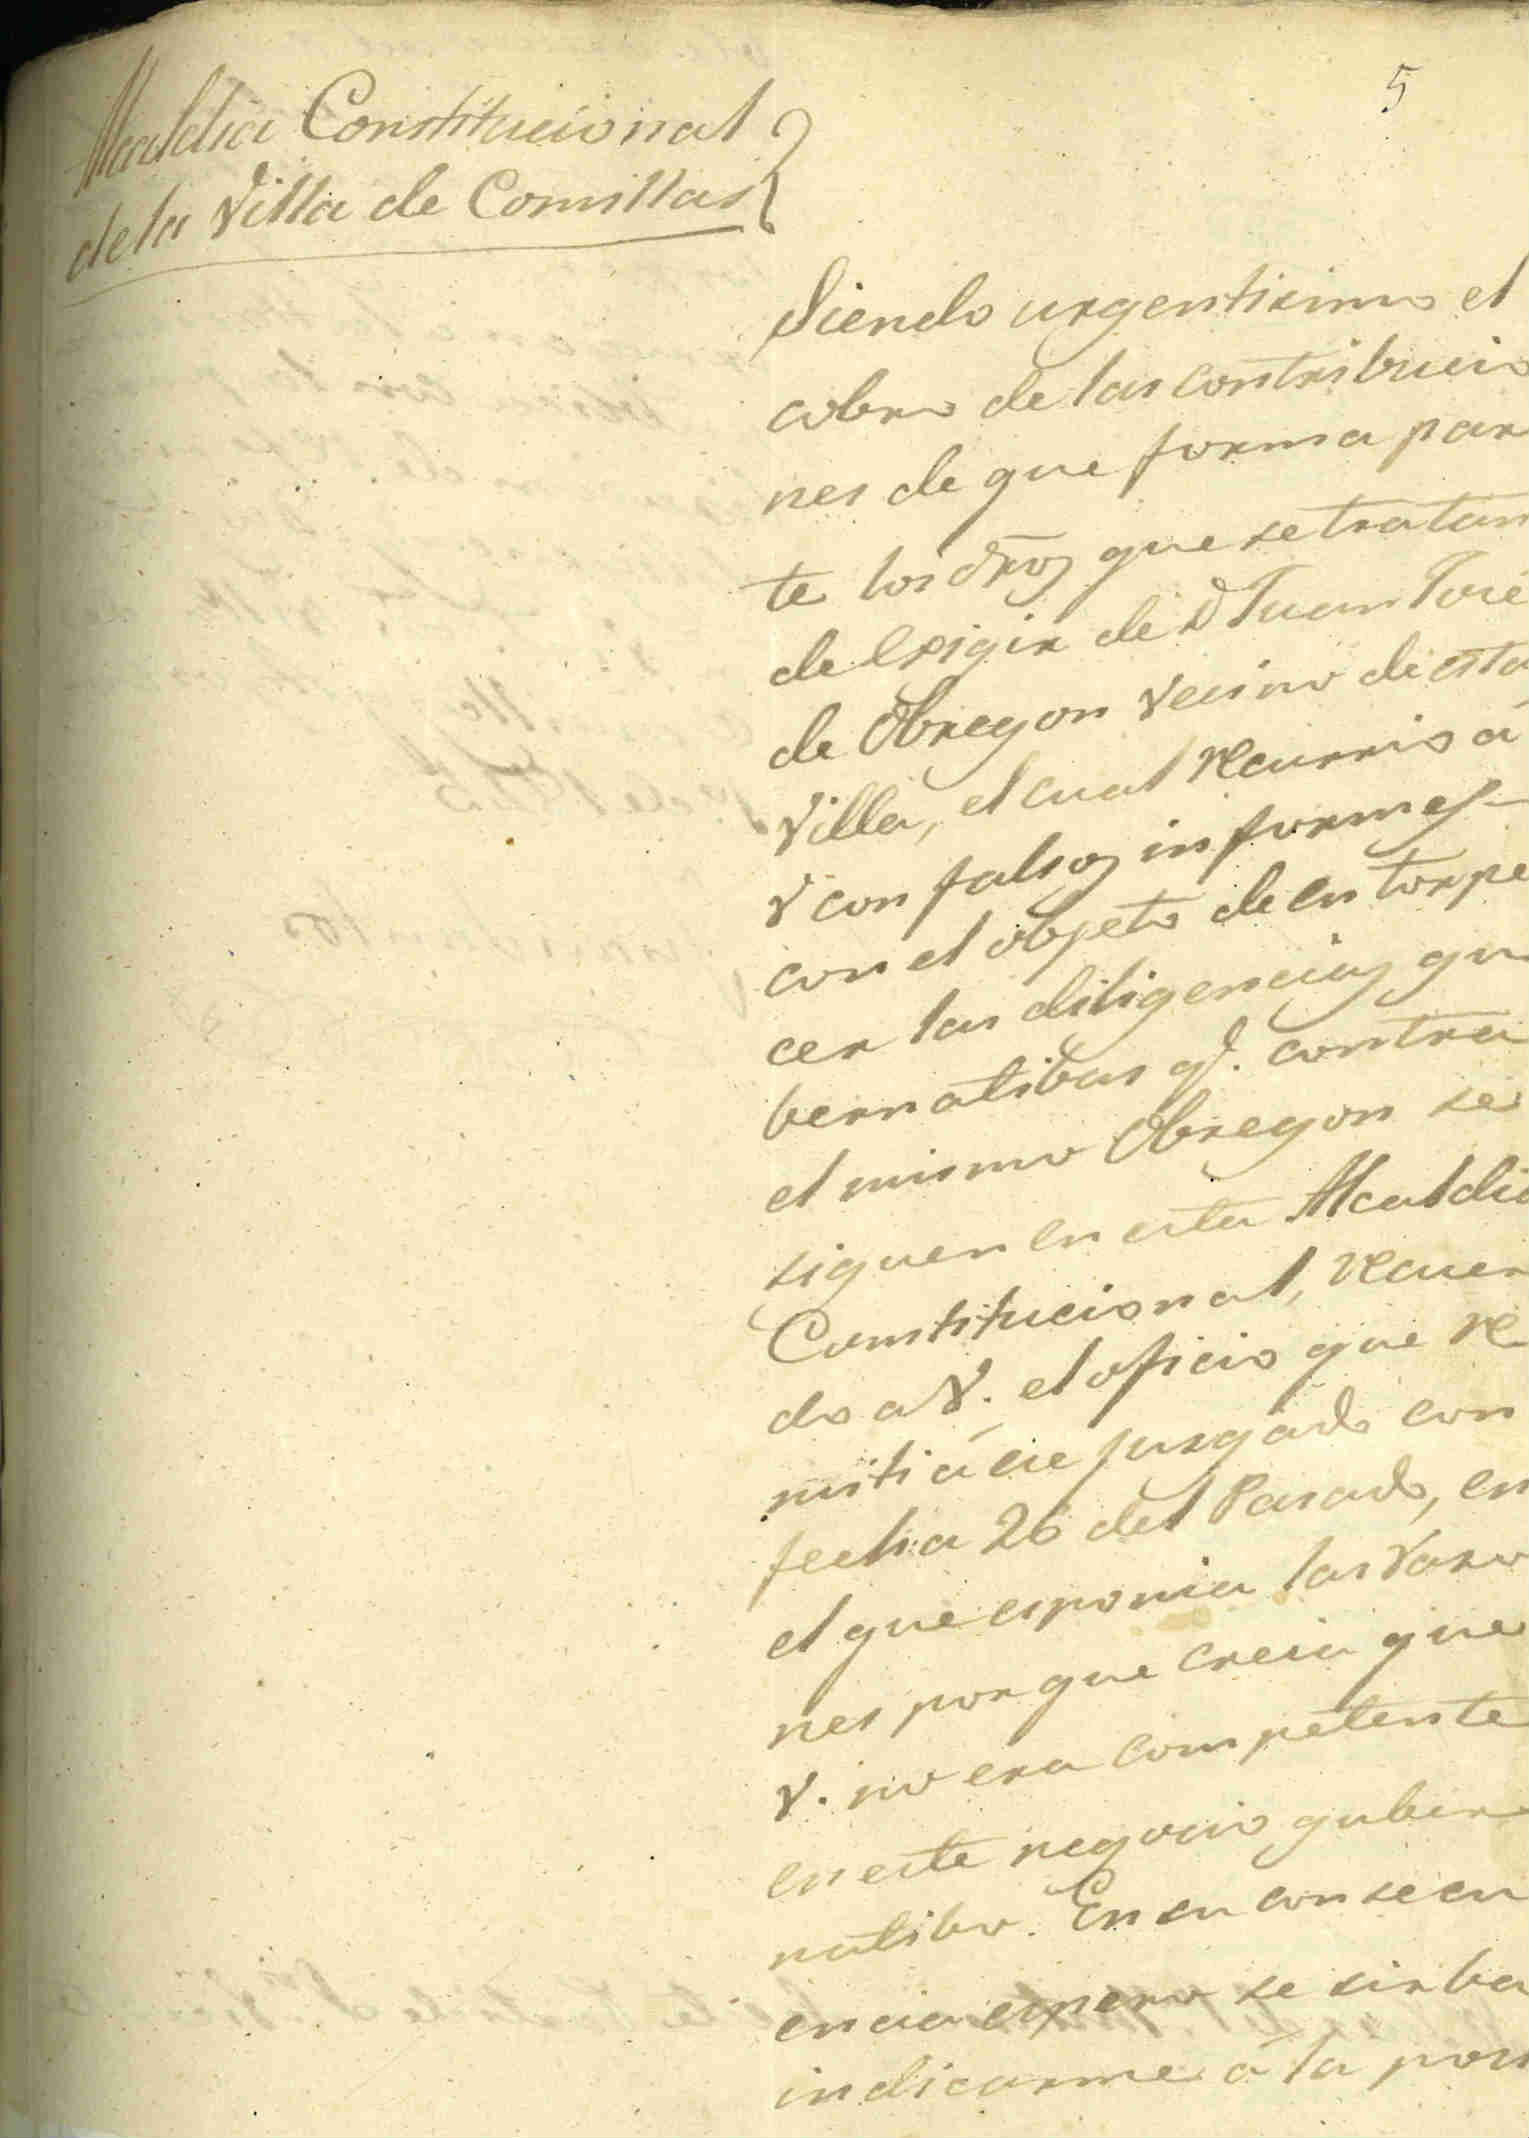 5
Alcaldia Constitucional
de la Villa de Comillas
Siendo urgentisimo el
cobro de las contribucio
nes de que forma par
te los dros que se tratan
de Exsigir de D Juan José
de Obregon vecino de esta
Villa, el cual recurrio á
V con falsos informes
con el objeto de entorpe
cer las diligencias gu
bernatibas q.e contra
el mismo Obregon se
siguen en esta Alcaldia
Constitucional, recuer
do a V. el oficio que re
mití á ese Jusgado con
fecha 26 del Pasado, en
el que esponia las razo
nes por que creia que
V. no era competente
en este negocio guber
natibo. En su consecu
encia espero se sirba
indicarme á la pos